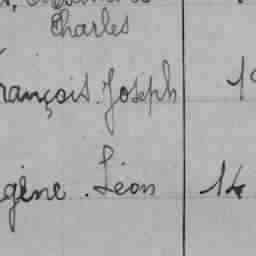 Charles
rançois Joseph 19
gène. Léon 14